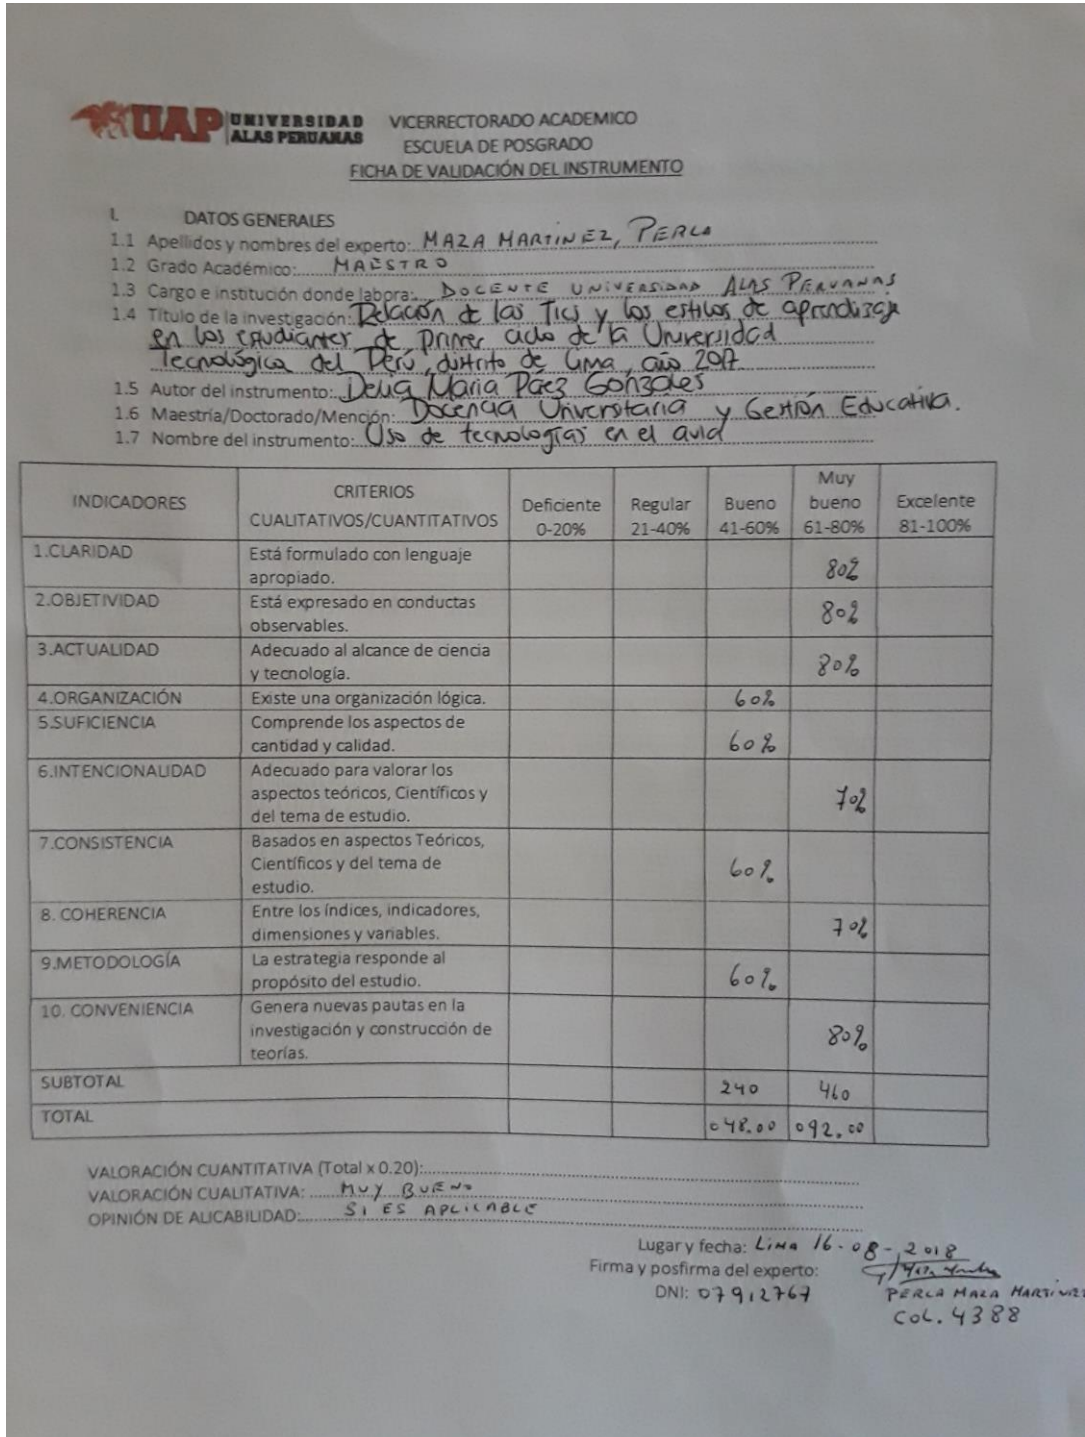 UAP UNIVERSIDAD ALAS PERUANAS
VICERRECTORADO ACADEMICO
ESCUELA DE POSGRADO
FICHA DE VALIDACIÓN DEL INSTRUMENTO
I. DATOS GENERALES
1.1 Apellidos y nombres del experto: MAZA MARTINEZ, PERLA
1.2 Grado Académico: MAESTRO
1.3 Cargo e institución donde labora: DOCENTE UNIVERSIDAD ALAS PERUANAS
1.4 Título de la investigación: Relación de las Tics y los estilos de aprendizaje
en los estudiantes de primer ciclo de la Universidad
Tecnológica del Perú, distrito de Lima, año 2017
1.5 Autor del instrumento: Delia Maria Páez Gonzales
1.6 Maestría/Doctorado/Mención: Docencia Universitaria y Gestión Educativa.
1.7 Nombre del instrumento: Uso de tecnologías en el aula
INDICADORES CRITERIOS CUALITATIVOS/CUANTITATIVOS Deficiente 0-20% Regular 21-40% Bueno 41-60% Muy bueno 61-80% Excelente 81-100%
1.CLARIDAD Está formulado con lenguaje
apropiado. 80%
2.OBJETIVIDAD Está expresado en conductas
observables. 80%
3.ACTUALIDAD Adecuado al alcance de ciencia
y tecnología. 80%
4.ORGANIZACIÓN Existe una organización lógica. 60%
5.SUFICIENCIA Comprende los aspectos de
cantidad y calidad. 60%
6.INTENCIONALIDAD Adecuado para valorar los
aspectos teóricos, Científicos y
del tema de estudio. 70%
7.CONSISTENCIA Basados en aspectos Teóricos,
Científicos y del tema de
estudio. 60%
8. COHERENCIA Entre los índices, indicadores,
dimensiones y variables. 70%
9.METODOLOGÍA La estrategia responde al
propósito del estudio. 60%
10. CONVENIENCIA Genera nuevas pautas en la
investigación y construcción de
teorías. 80%
SUBTOTAL 240 460
TOTAL 048.00 092.00
VALORACIÓN CUANTITATIVA (Total x 0.20):
VALORACIÓN CUALITATIVA: MUY BUENO
OPINIÓN DE ALICABILIDAD: SI ES APLICABLE
Lugar y fecha: LIMA 16-08-2018
Firma y posfirma del experto:
DNI: 07912767 PERLA MAZA MARTINEZ
COL. 4388